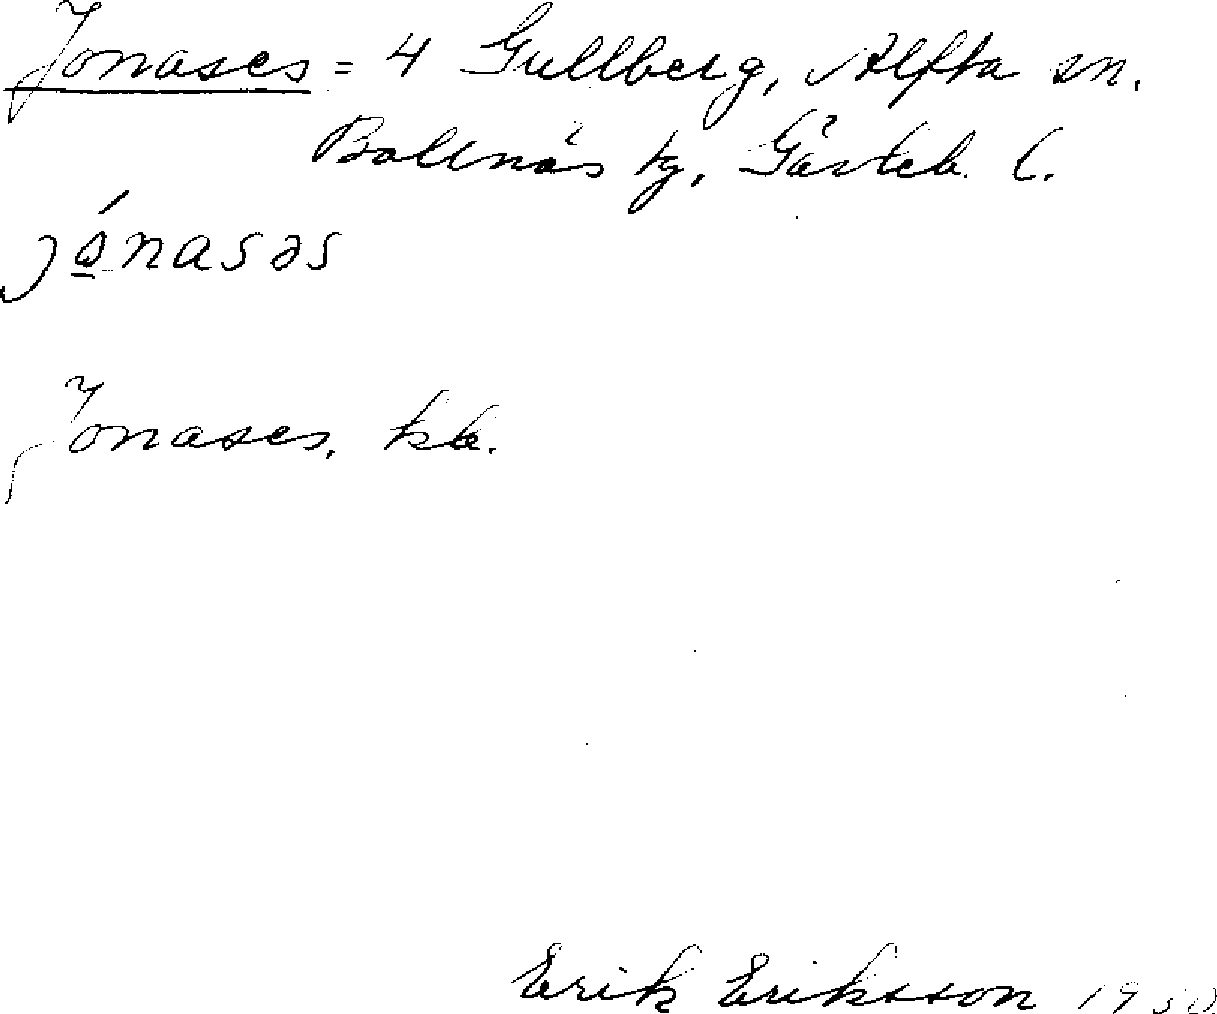 Jonases = 4 Gullberg, Alfta sn.
Bollnäs tg, Gävleb. l.
jó̲nasəs
Jonases, kb.
Erik Eriksson 1950